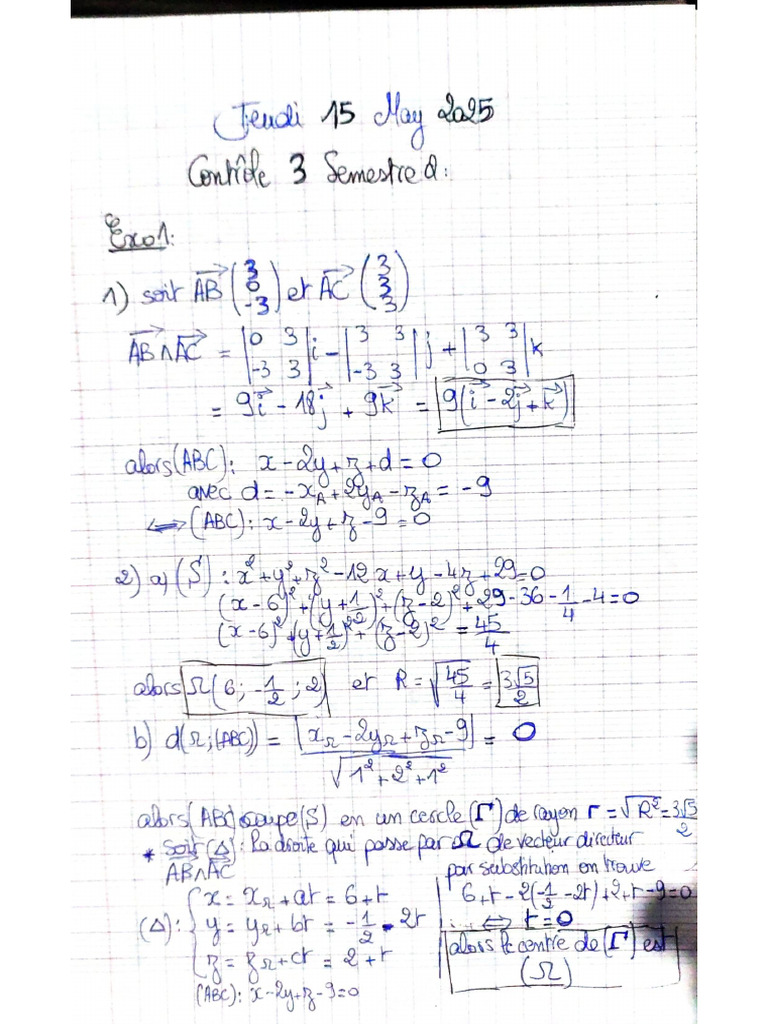 Jeudi 15 May 2025
Contrôle 3 Semestre 2:
Exo1:
1) soit AB⃗ (3 0 -3) et AC⃗ (3 3 3)
AB⃗ ∧ AC⃗ = |0 3; -3 3| i - |3 3; -3 3| j + |3 3; 0 3| k
= 9i⃗ - 18j⃗ + 9k⃗ = 9(i⃗ - 2j⃗ + k⃗)
alors (ABC): x - 2y + z + d = 0
avec d = -x_A + 2y_A - z_A = -9
⟺ (ABC): x - 2y + z - 9 = 0
2) a) (S): x² + y² + z² - 12x + y - 4z + 29 = 0
(x-6)² + (y+1/2)² + (z-2)² + 29 - 36 - 1/4 - 4 = 0
(x-6)² + (y+1/2)² + (z-2)² = 45/4
alors Ω(6; -1/2; 2) et R = √(45/4) = 3√5/2
b) d(Ω;(ABC)) = |x_Ω - 2y_Ω + z_Ω - 9| / √(1² + 2² + 1²) = 0
alors (ABC) coupe (S) en un cercle (Γ) de rayon r = √R² = 3√5/2
* Soit (Δ): la droite qui passe par Ω de vecteur directeur
AB⃗ ∧ AC⃗
(Δ): { x = x_Ω + at = 6 + t
y = y_Ω + bt = -1/2 - 2t
z = z_Ω + ct = 2 + t
(ABC): x - 2y + z - 9 = 0
par substitution on trouve
6 + t - 2(-1/2 - 2t) + 2 + t - 9 = 0
... ⟺ t = 0
alors le centre de (Γ) est
(Ω)